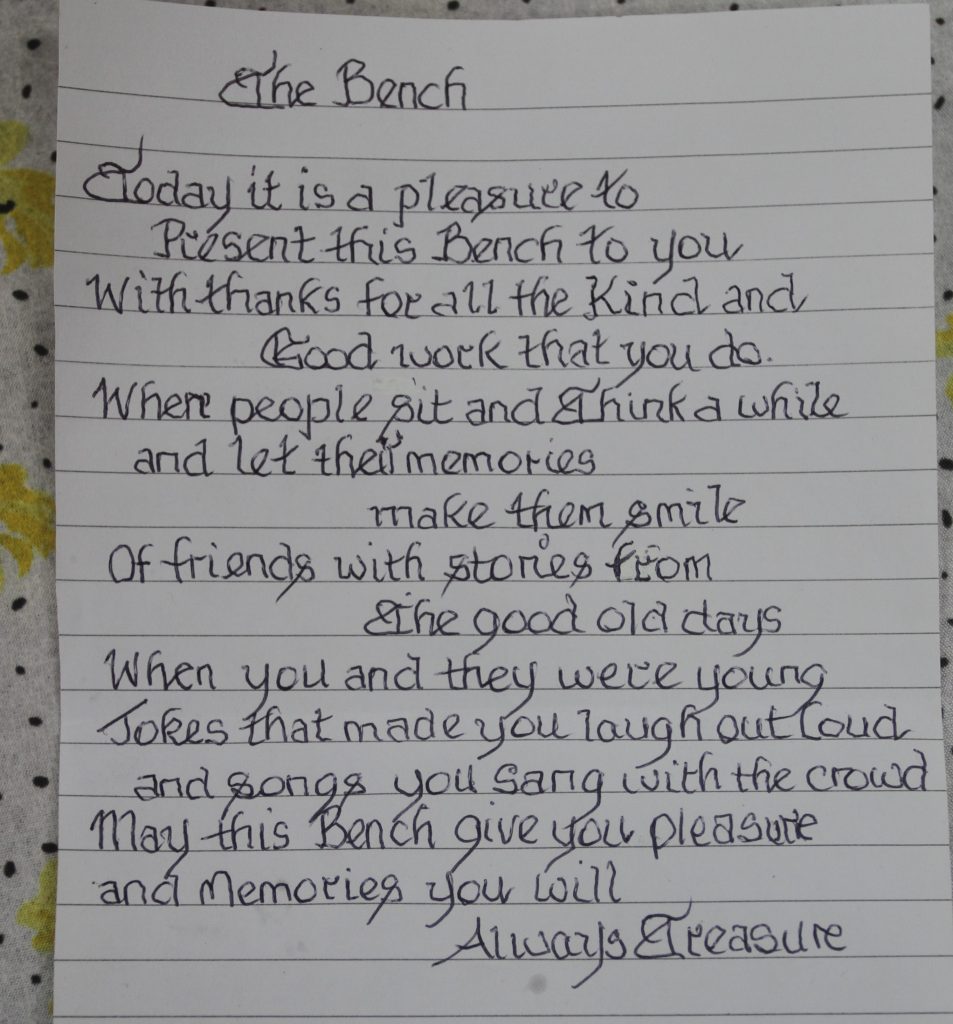 The Bench
Today it is a pleasure to
Present this Bench to you
With thanks for all the Kind and
Good work that you do.
Where people sit and Think a while
and let their memories
make them smile
Of friends with stories from
The good old days
When you and they were young
Jokes that made you laugh out loud
and songs you sang with the crowd
May this Bench give you pleasure
and Memories you will
Always Treasure